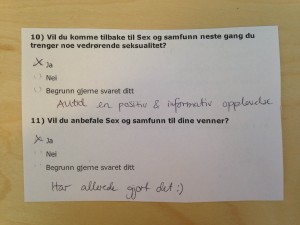 10) Vil du komme tilbake til Sex og samfunn neste gang du
trenger noe vedrørende seksualitet?
X Ja
Nei
Begrunn gjerne svaret ditt
Alltid en positiv & informativ opplevelse
11) Vil du anbefale Sex og samfunn til dine venner?
X Ja
Nei
Begrunn gjerne svaret ditt
Har allerede gjort det :)